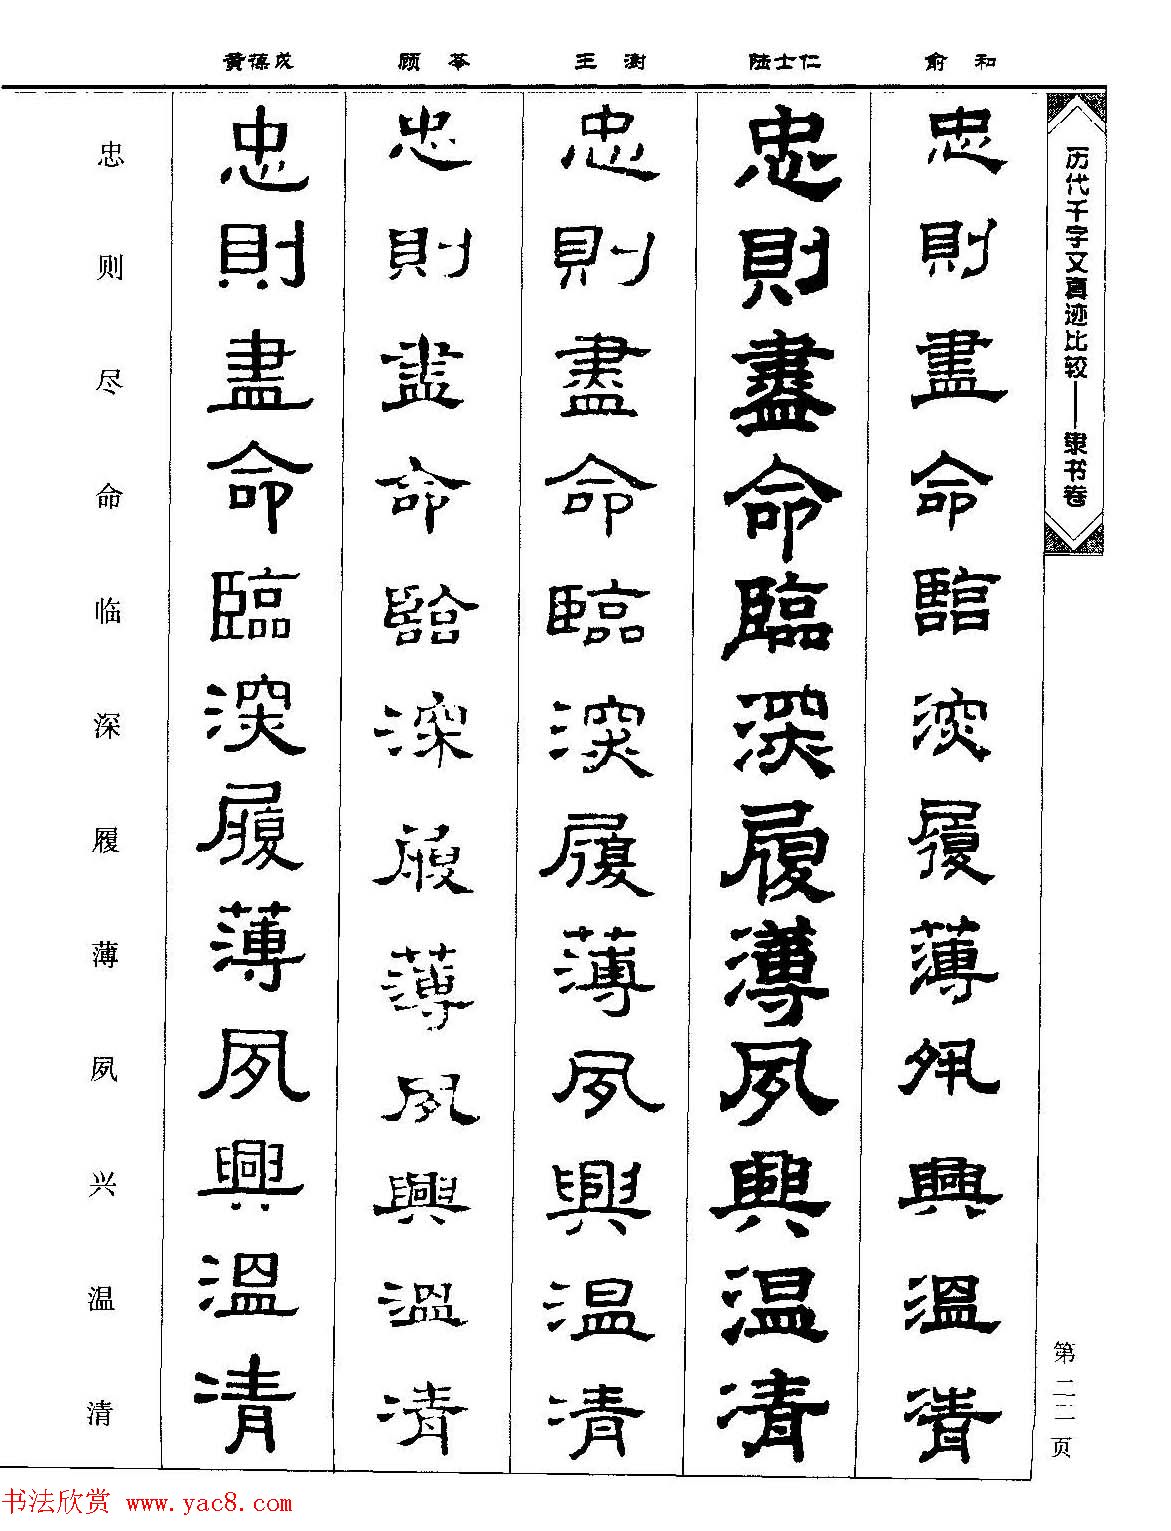 黄葆戉 顾苓 王澍 陆士仁 俞和
历代千字文真迹比较——隶书卷
第二二页
忠則盡命臨深履薄夙興溫清
忠則盡命臨深履薄夙興温清
忠則盡命臨深履薄夙興温清
忠則盡命臨深履薄夙興溫清
忠則盡命臨深履薄夙興溫清
忠则尽命临深履薄夙兴温清
书法欣赏 www.yac8.com